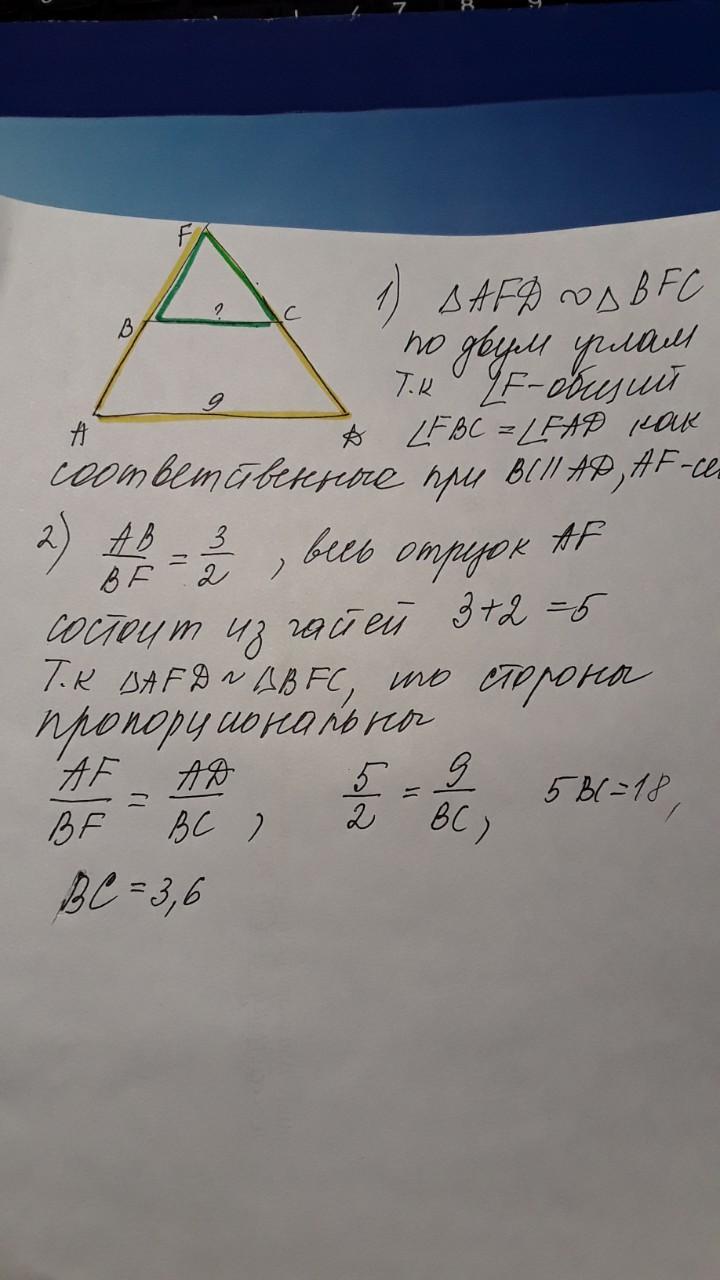 7 8 9
F
B ? C
A 9 D
1) △AFD ∾ △BFC
по двум углам
т.к ∠F-общий
∠FBC = ∠FAD как
соответственные при BC||AD, AF-се
2) AB/BF = 3/2 , весь отрезок AF
состоит из частей 3+2=5
Т.к △AFD ~ △BFC, то стороны
пропорциональны
AF/BF = AD/BC , 5/2 = 9/BC , 5BC=18,
BC = 3,6